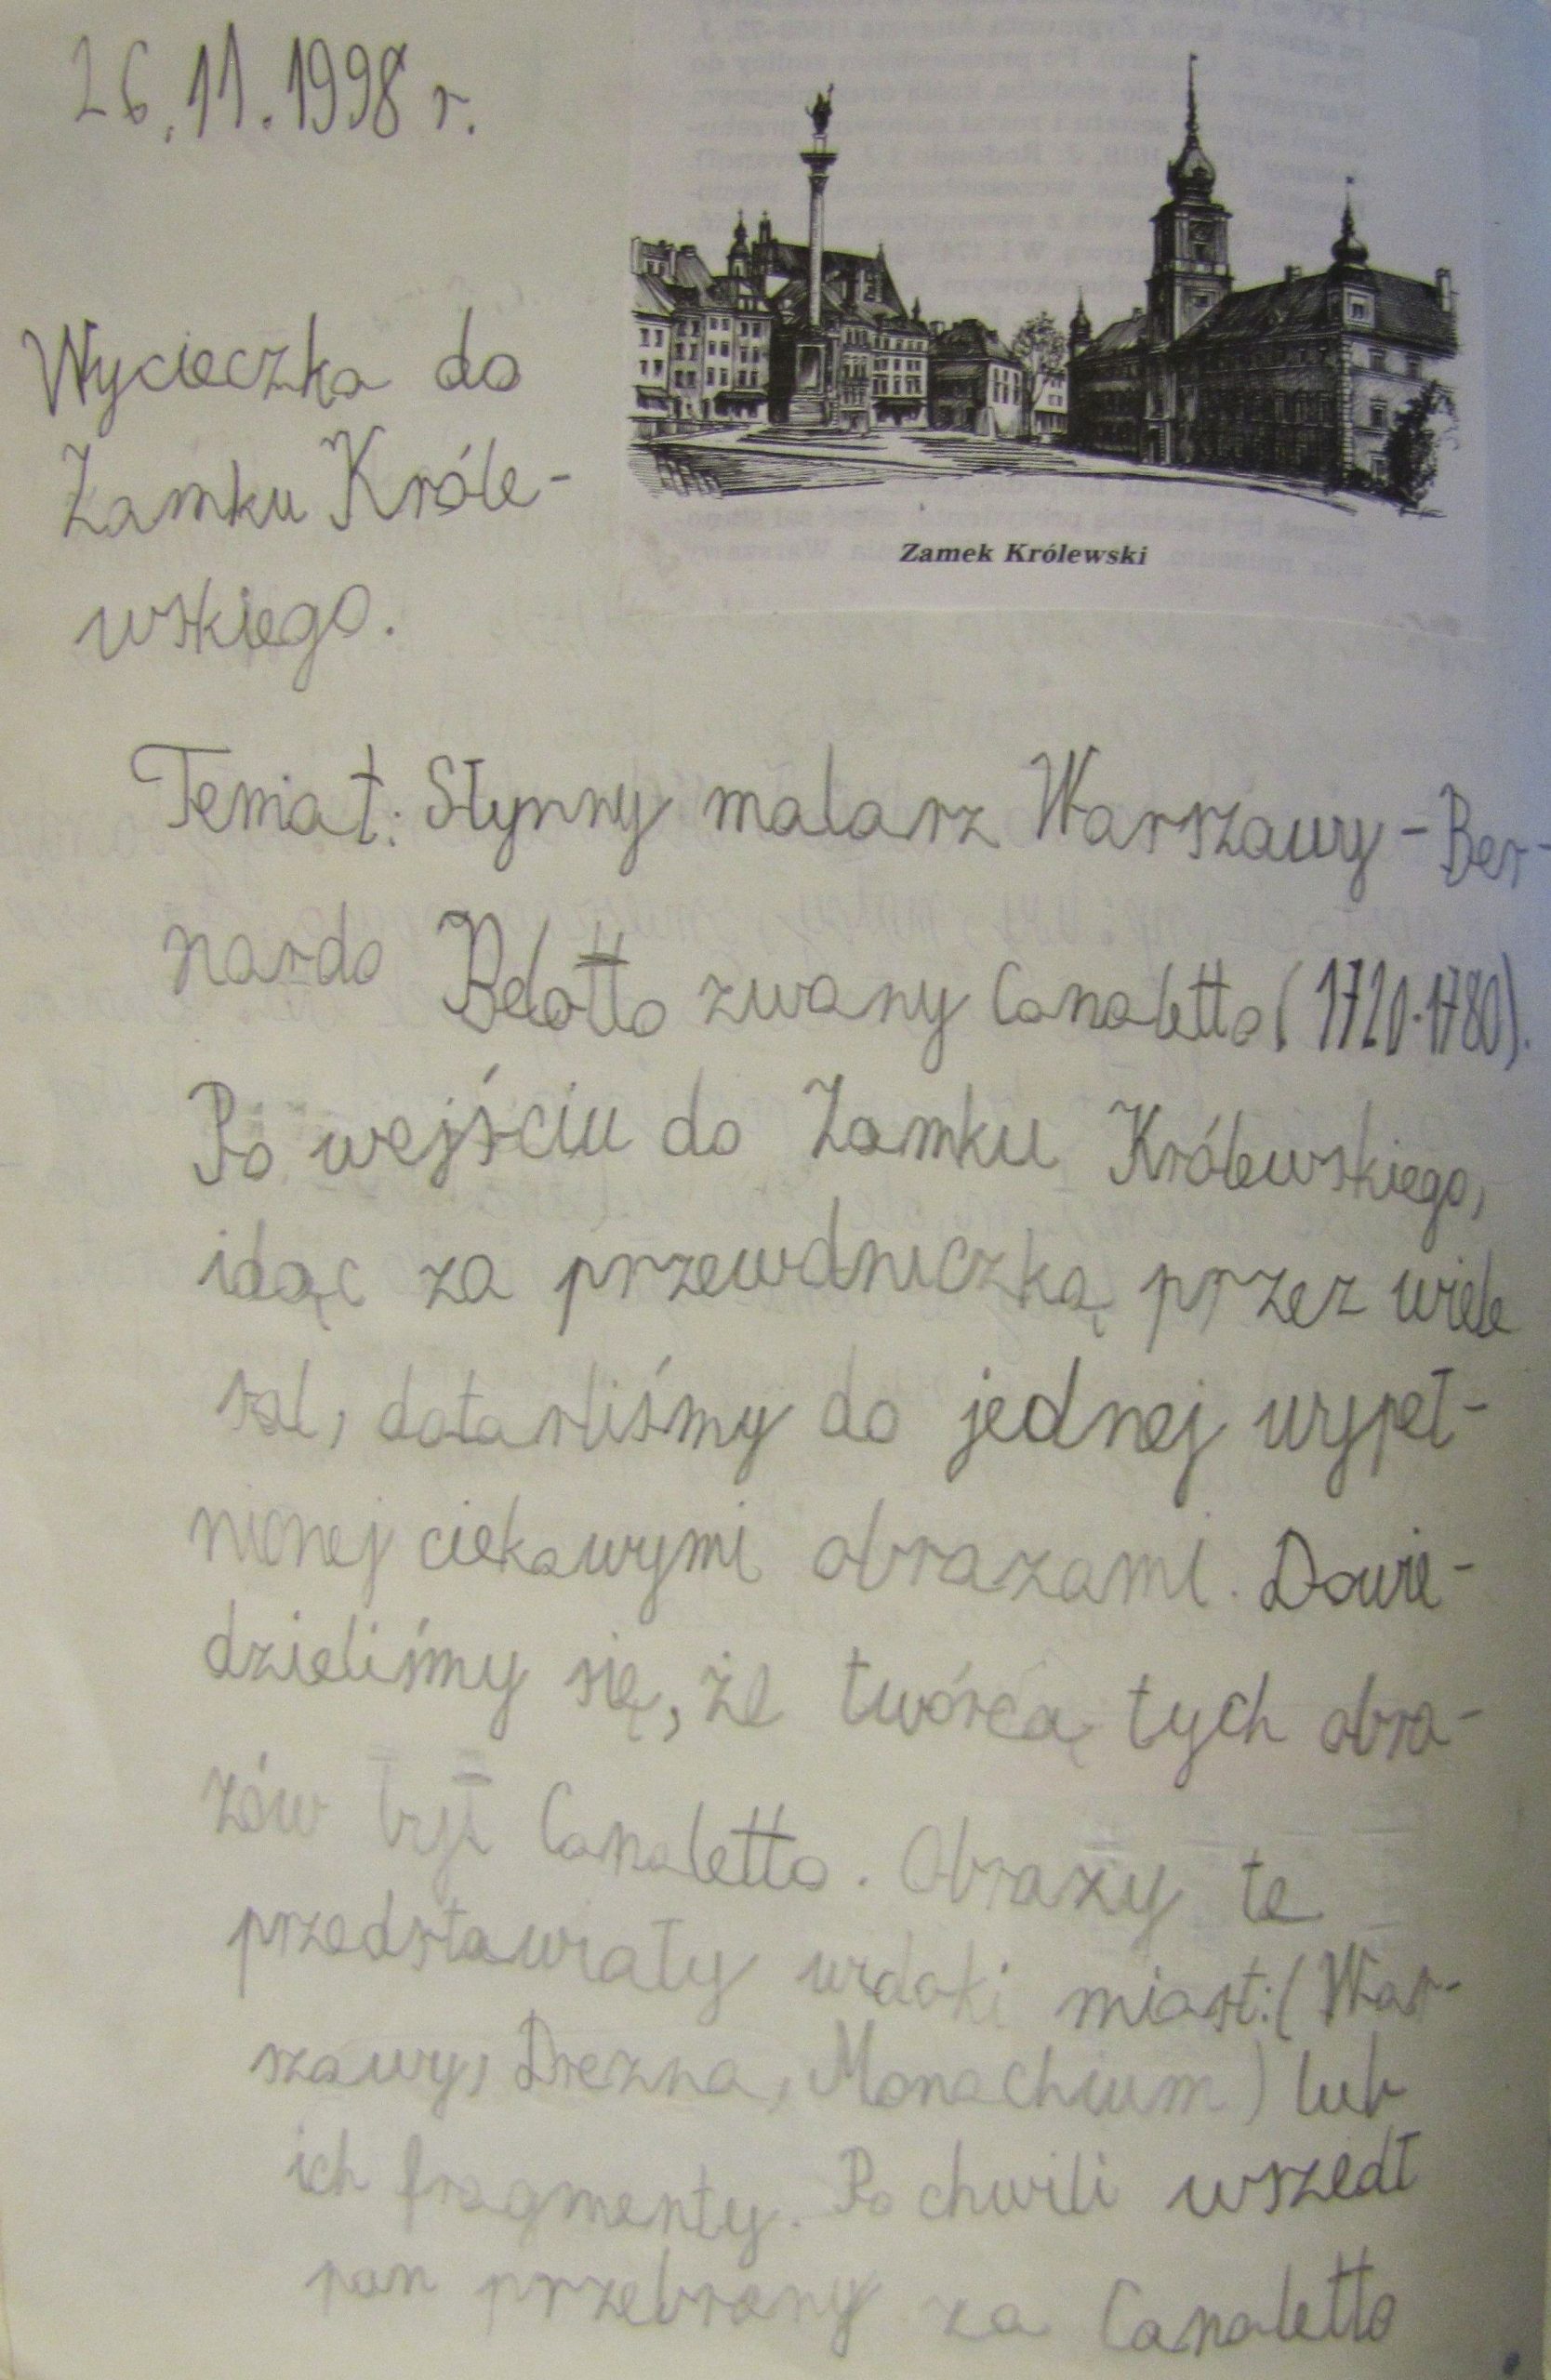 26.11.1998 r.
Wycieczka do
Zamku Króle-
wskiego.
Zamek Królewski
Temat: Słynny malarz Warszawy - Ber-
nardo Belotto zwany Canaletto (1720-1780).
Po wejściu do Zamku Królewskiego,
idąc za przewdniczką przez wiele
sal, dotarliśmy do jednej wypeł-
nionej ciekawymi obrazami. Dowie-
dzieliśmy się, że twórcą tych obra-
zów był Canaletto. Obrazy te
przedstawiały widoki miast: (War-
szawy, Drezna, Monachium) lub
ich fragmenty. Po chwili wszedł
pan przebrany za Canaletto